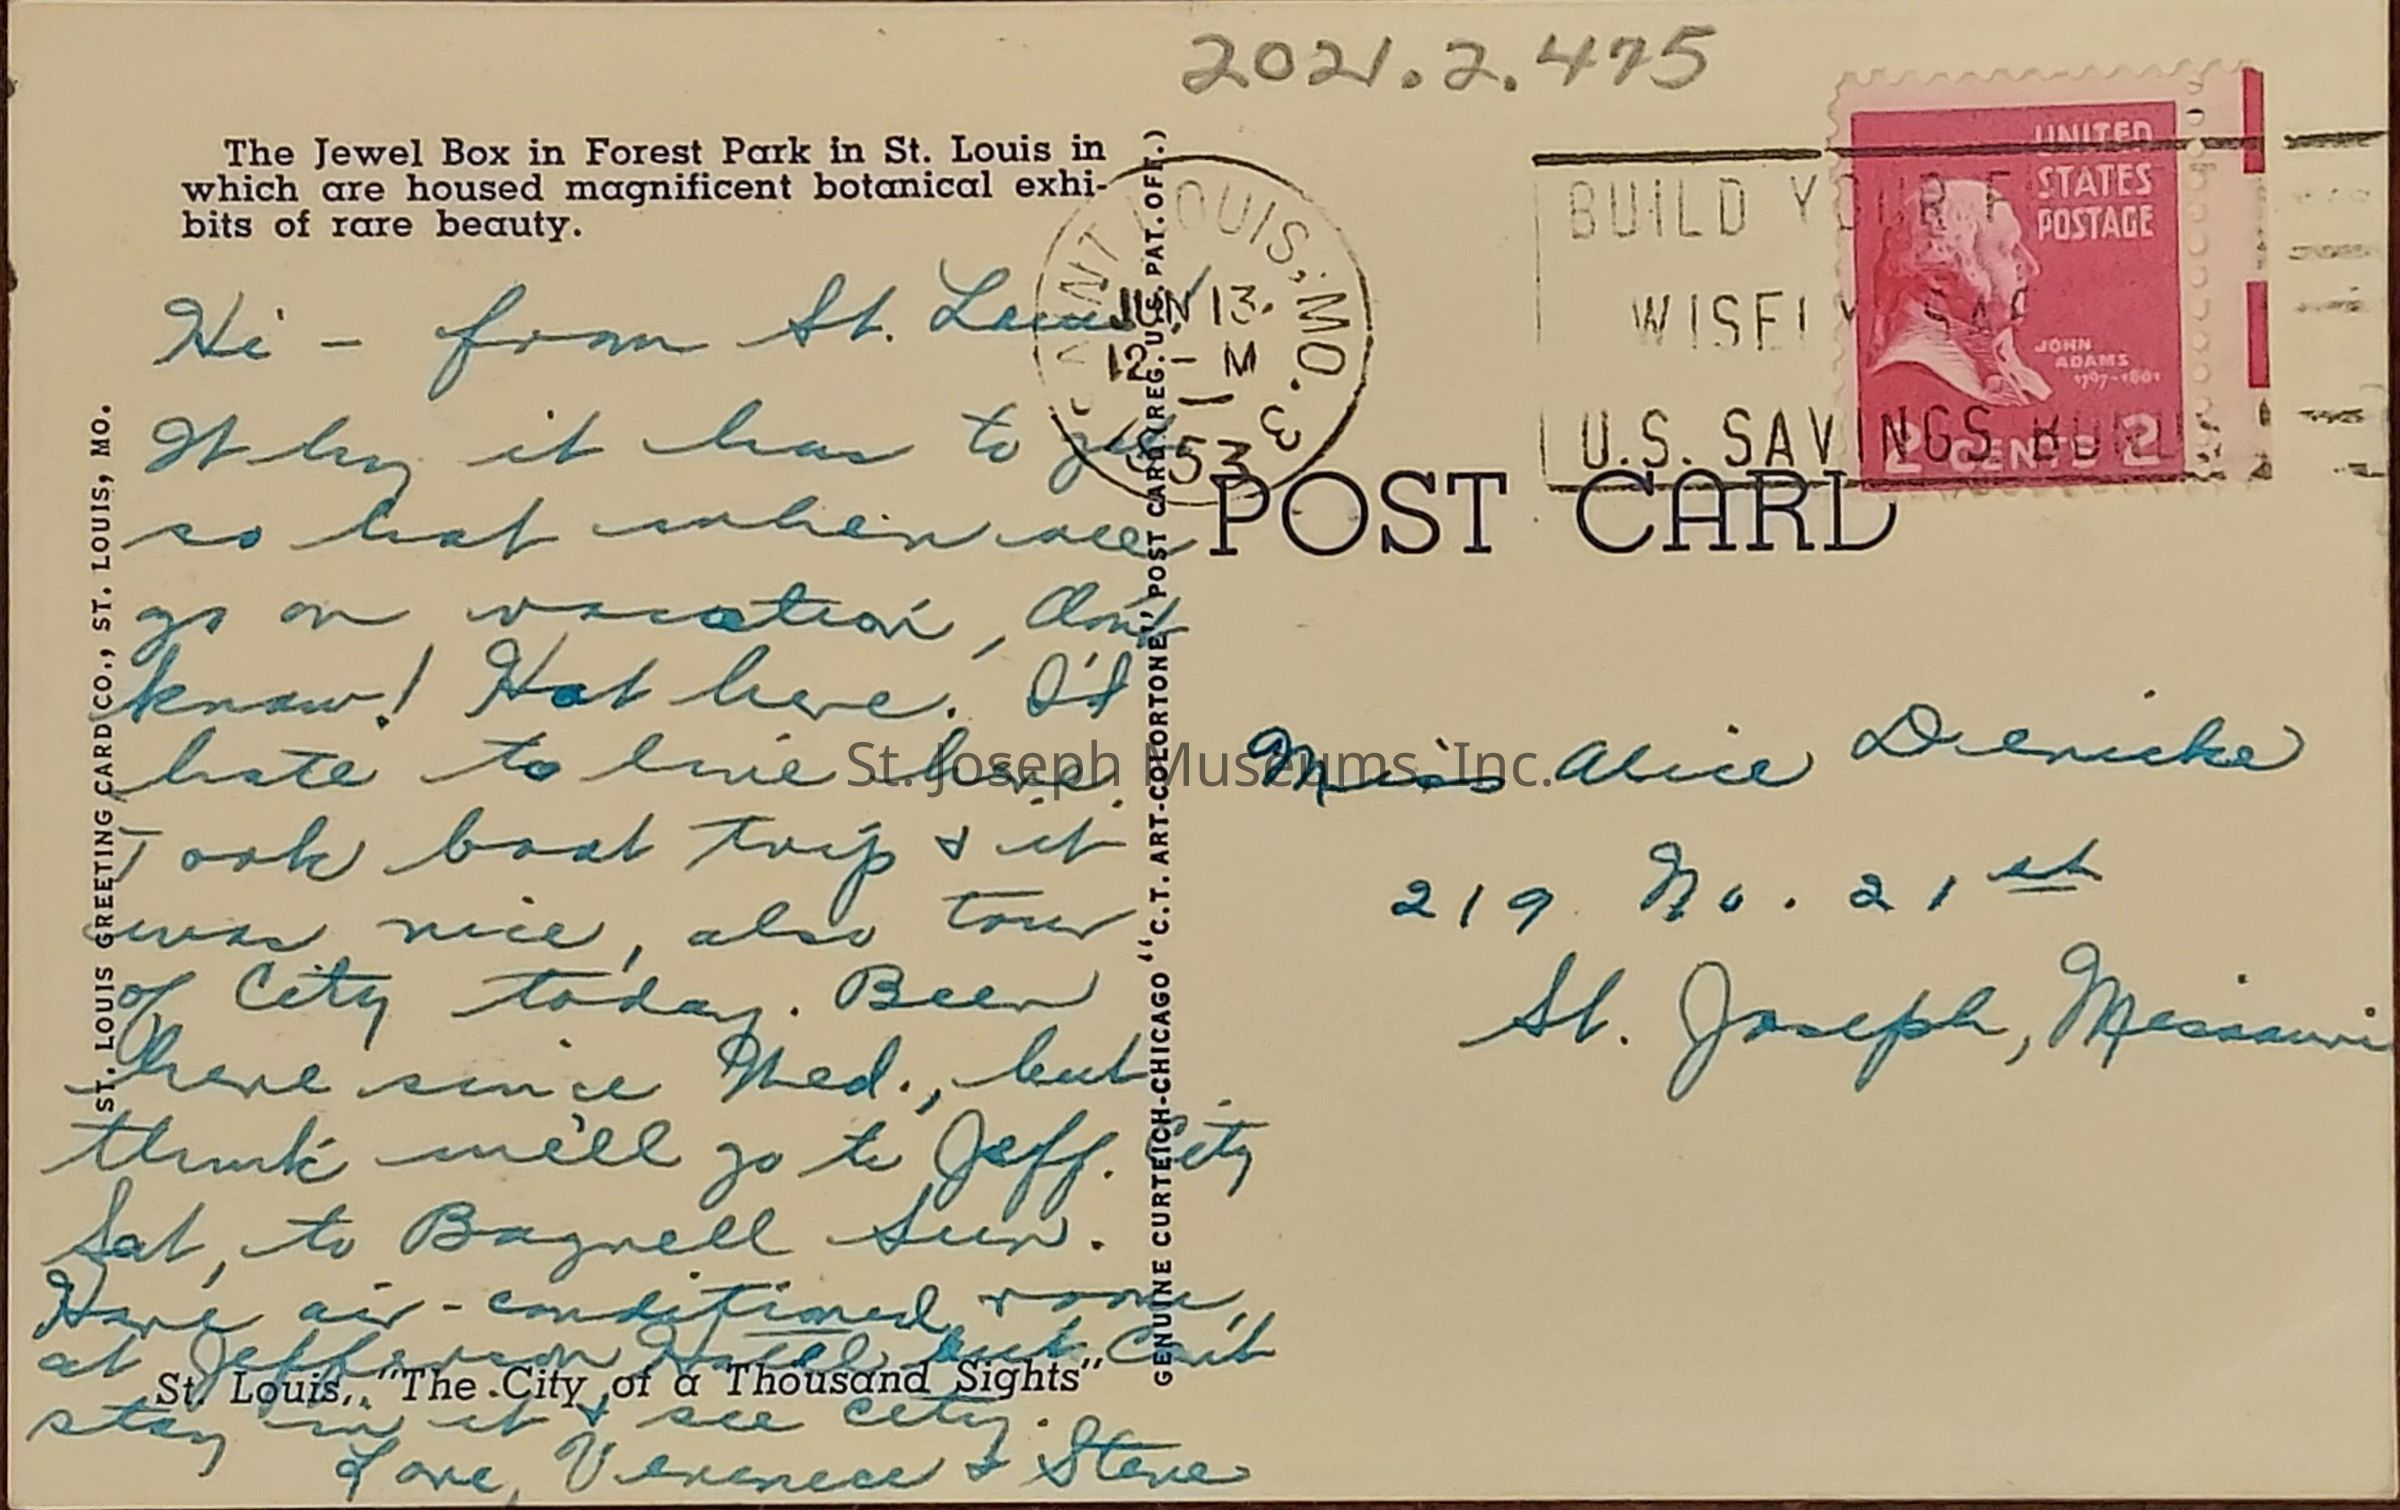 2021.2.475
The Jewel Box in Forest Park in St. Louis in
which are housed magnificent botanical exhi-
bits of rare beauty.
Hi - from St. Louis
Why it has to get
so hot when we
go on vacation, don't
know! Hot here. I'd
hate to live here.
Took boat trip & it
was nice, also tour
of City today. Been
here since Wed., but
think we'll go to Jeff. City
Sat, to Bagnell Sun.
Have air-conditioned room
at Jefferson Hotel but can't
stay in it & see city.
Love, & Steve
St. Louis, "The City of a Thousand Sights"
ST. LOUIS GREETING CARD CO., ST. LOUIS, MO.
GENUINE CURTEICH-CHICAGO "C.T. ART-COLORTONE" POST CARD (REG. U.S. PAT. OFF.)
LOUIS, MO. 3
JUN 13
12 - M
53
BUILD YOUR
WISELY
U.S. SAVINGS
UNITED
STATES
POSTAGE
JOHN
ADAMS
1797-1801
2 CENTS 2
POST CARD
Miss Alice Diericke
219 No. 21st
St. Joseph, Missouri
St. Joseph Museums, Inc.